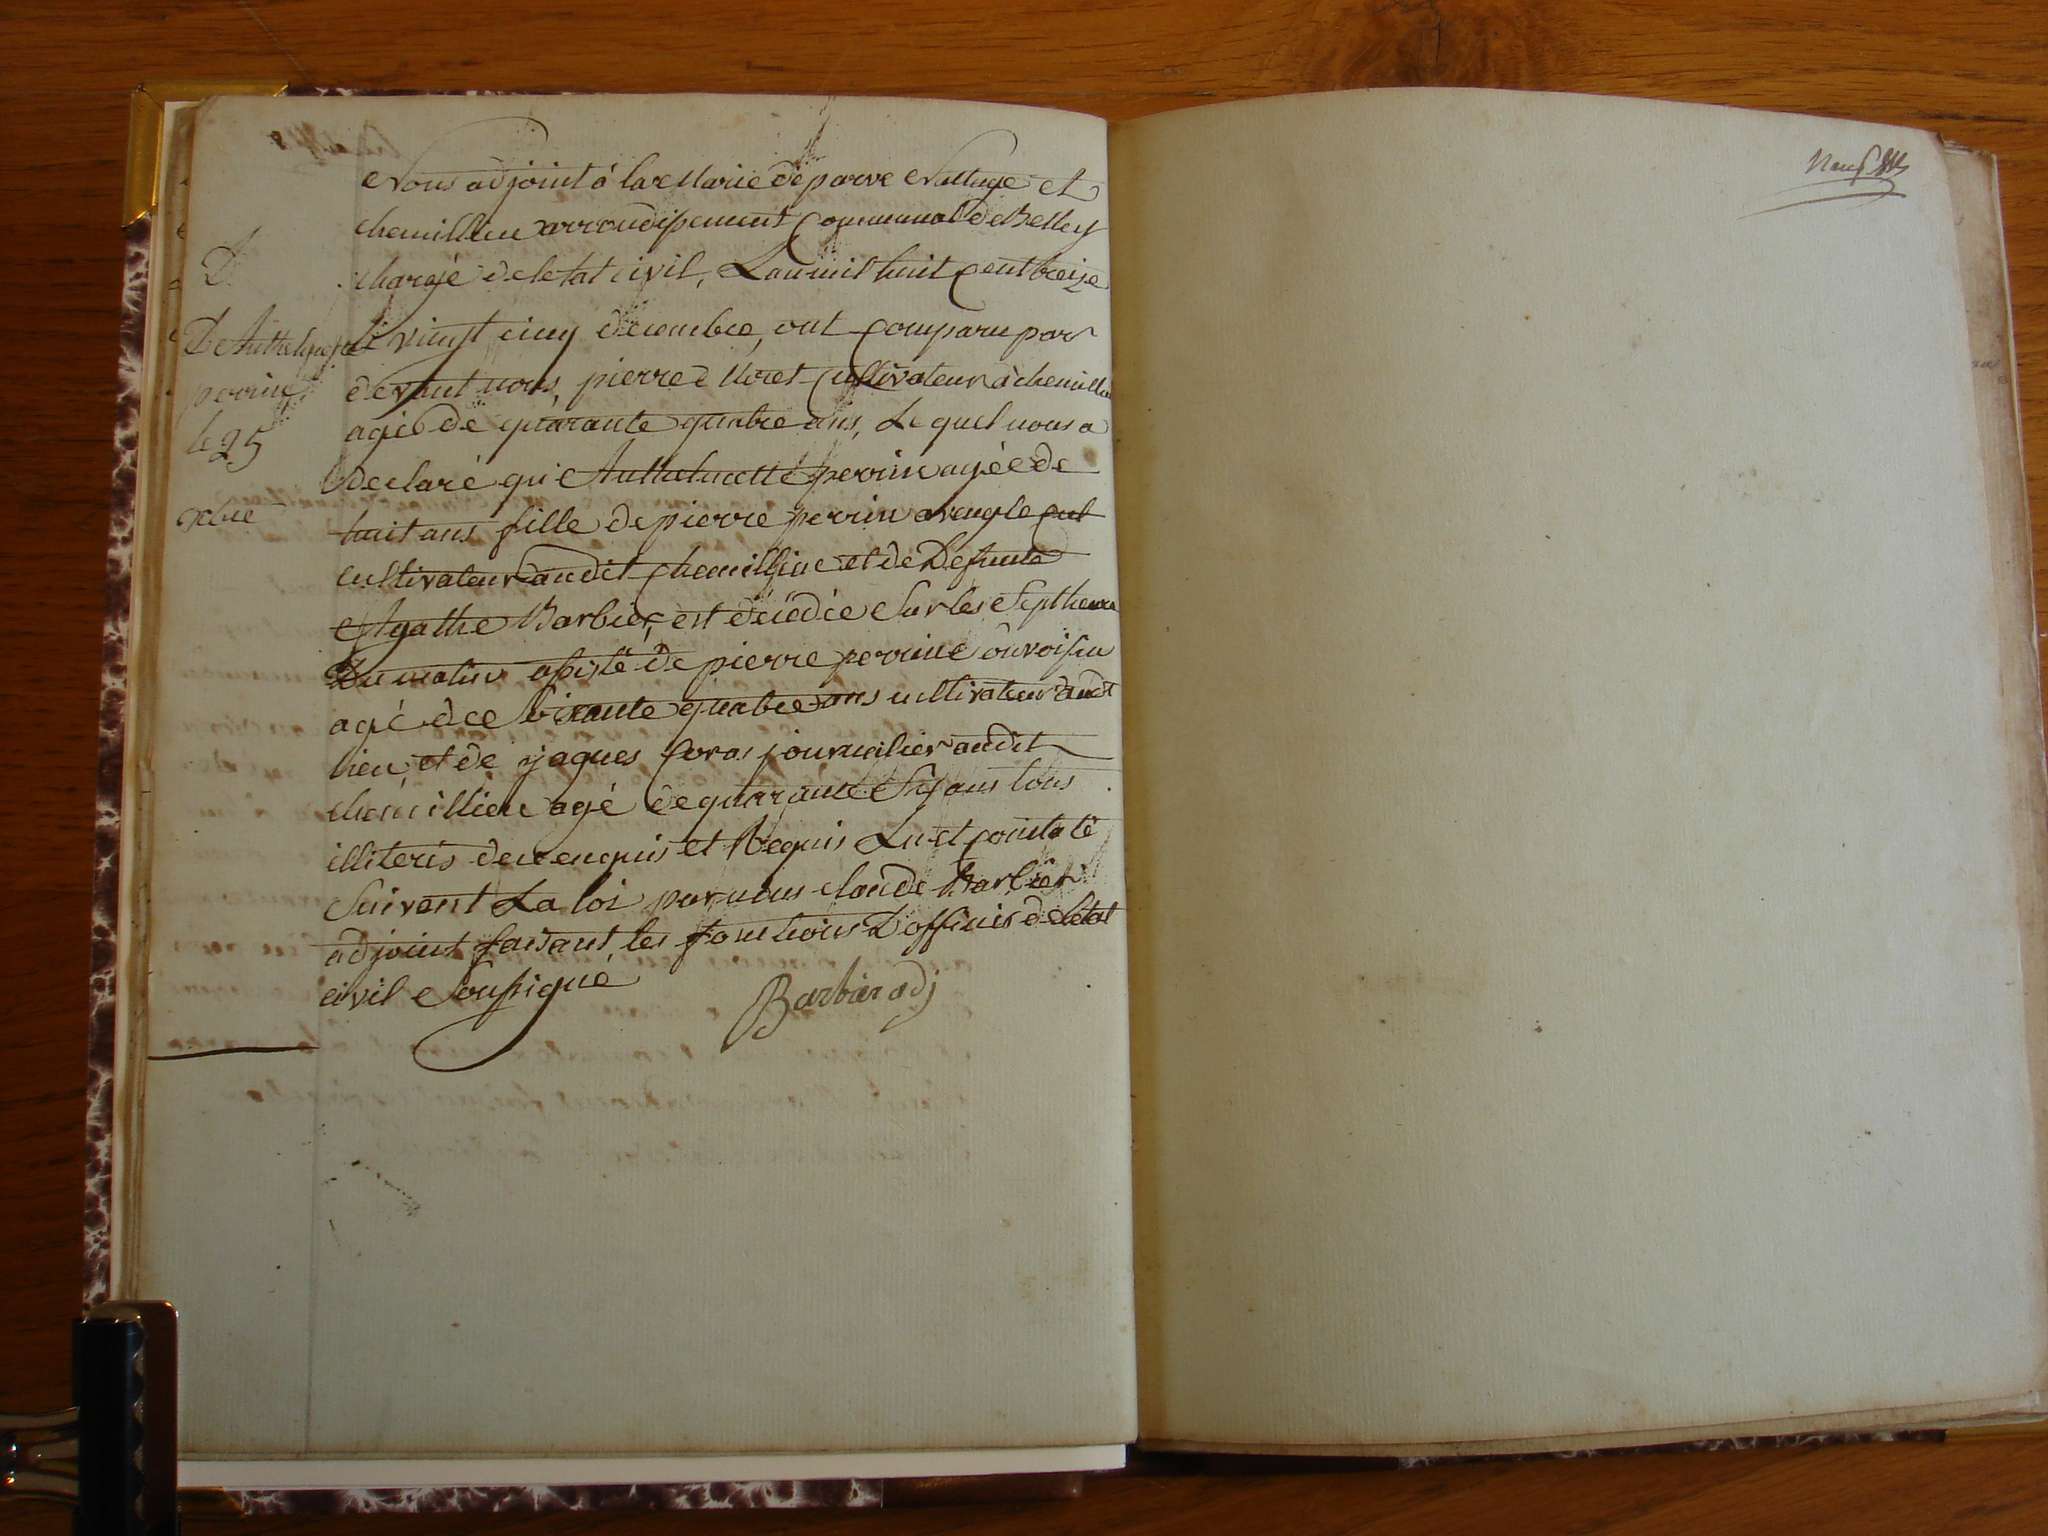 D
D'Anthelmette
perrin
le 25
xbre
Nous adjoint à la Marie de parve Nattage et
chemillieu arrondissement Communal de Belley
chargé de letat civil, Lan mil huit Cent treize
et vingt cinq decembre, ont Comparu par
devant nous, pierre Moret Cultivateur à chemillieu
agé de quarante quatre ans, Le quel nous a
declaré qu'Anthelmette perrin agée de
huit ans fille de pierre perrin aveugle
cultivateur audit chemillieu et de Defunte
Agathe Barbier, est décédée Sur les Sept heures
Du matin assisté de pierre perrin voisin
agé de soixante quatre ans cultivateur audit
lieu, et de jaques journalier audit
chemillieu agé de quarante Six ans tous
illiteris de ce enquis et Requis Lu et Constaté
Suivant La loi par nous claude Barbier
adjoint faisant les fonctions D'officier de letat
civil Soussigné
Barbier adj